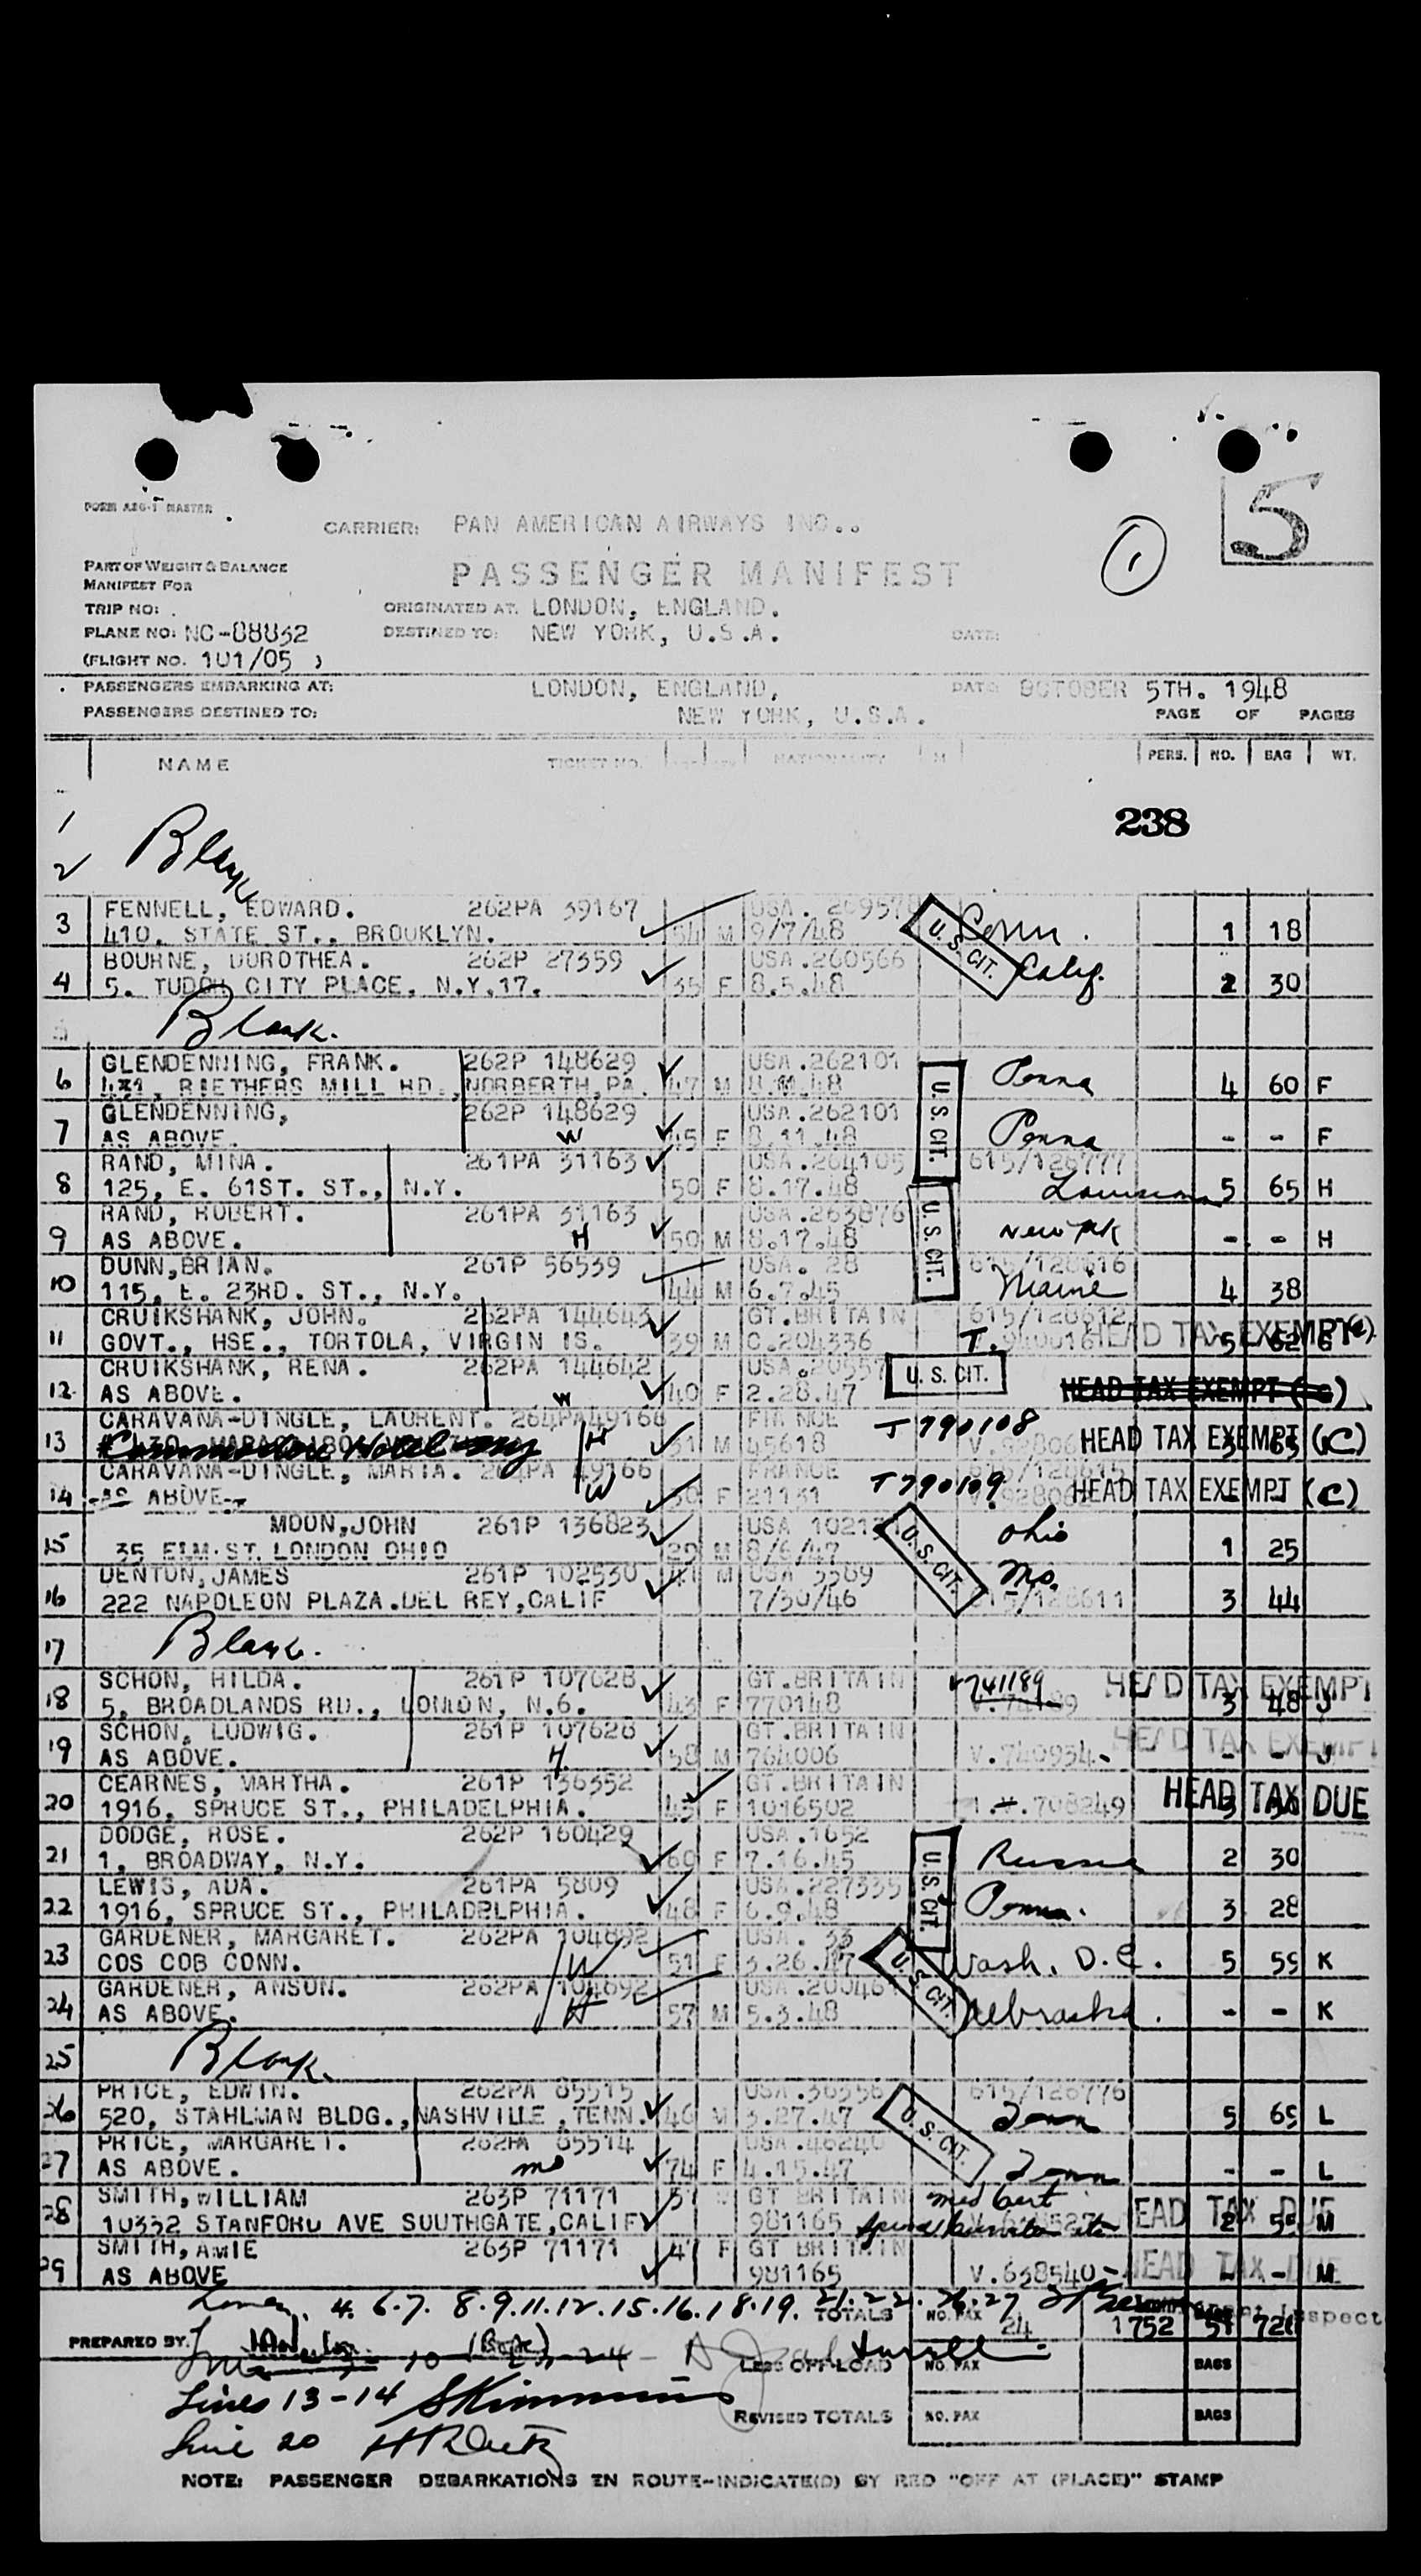 5
FORM MASTER
CARRIER: PAN AMERICAN AIRWAYS INC..
1
PART OF WEIGHT & BALANCE
MANIFEST FOR
PASSENGER MANIFEST
TRIP NO:
ORIGINATED AT: LONDON, ENGLAND.
PLANE NO: NC-88832
DESTINED TO: NEW YORK, U.S.A.
DATE:
(FLIGHT NO. 101/05 )
PASSENGERS EMBARKING AT: LONDON, ENGLAND, DATE OCTOBER 5TH. 1948
PASSENGERS DESTINED TO: NEW YORK, U.S.A. PAGE OF PAGES
NAME TICKET NO. NATIONALITY PERS. NO. BAG WT.
238
1 Blank
2
3 FENNELL, EDWARD. 262PA 39167 USA.
410, STATE ST., BROOKLYN. 54 M 9/7/48 U.S. CIT. Conn. 1 18
4 BOURNE, DOROTHEA. 262P 27359 USA.260566
5. TUDOR CITY PLACE, N.Y.17. 35 F 8.5.48 Calif. 2 30
5 Blank.
6 GLENDENNING, FRANK. 262P 148629 USA.262101
RIETHERS MILL RD., NORBERTH, PA. 47 M U.S. CIT. Penna 4 60 F
7 GLENDENNING, 262P 148629 USA.262101
AS ABOVE. W 45 F 8.11.48 Penna - - F
8 RAND, MINA. 261PA 31163 USA.264105 615/128777
125, E. 61ST. ST., N.Y. 50 F 8.17.48 Louisiana 5 65 H
9 RAND, ROBERT. 261PA 31163 USA.263876
AS ABOVE. H 50 M 8.17.48 U.S. CIT. New York - - H
10 DUNN,BRIAN. 261P 56539 USA. 28 615/128616
115, E. 23RD. ST., N.Y. 44 M 6.7.45 Maine 4 38
11 CRUIKSHANK, JOHN. 262PA 144643 GT.BRITAIN 615/128612
GOVT., HSE., TORTOLA, VIRGIN IS. 39 M C.204336 T. HEAD TAX EXEMPT 5 62 G
12 CRUIKSHANK, RENA. 262PA 144642 USA.
AS ABOVE. W 40 F 2.28.47 U.S. CIT. HEAD TAX EXEMPT
13 CARAVANA-DINGLE, LAURENT. 264PA49166 FRANCE T 790108
Commodore Hotel H 31 M 45618 HEAD TAX EXEMPT (C)
14 CARAVANA-DINGLE, MARIA. 264PA 49166 FRANCE T 790109
AS ABOVE. W 30 F 21131 HEAD TAX EXEMPT (C)
15 MOON,JOHN 261P 136823 USA
35 ELM.ST.LONDON OHIO 29 M 8/6/47 U.S. CIT. Ohio 1 25
16 DENTON,JAMES 261P 102530 41 M USA 5569 Mo.
222 NAPOLEON PLAZA.DEL REY,CALIF 7/30/46 615/128611 3 44
17 Blank.
18 SCHON, HILDA. 261P 107628 GT.BRITAIN 741189 HEAD TAX EXEMPT
5, BROADLANDS RD., LONDON, N.6. 43 F 770148 3 48 J
19 SCHON, LUDWIG. 261P 107628 GT.BRITAIN HEAD TAX EXEMPT
AS ABOVE. H. 58 M 764006 V.740934 - - J
20 CEARNES, MARTHA. 261P 136352 GT.BRITAIN
1916, SPRUCE ST., PHILADELPHIA. 45 F 1016502 708249 HEAD TAX DUE
21 DODGE, ROSE. 262P 160429 USA.1652
1, BROADWAY, N.Y. 60 F 7.16.45 U.S. CIT. Russia 2 30
22 LEWIS, ADA. 261PA 5809 USA.227335
1916, SPRUCE ST., PHILADELPHIA. 48 F 6.9.48 Penna. 3 28
23 GARDENER, MARGARET. 262PA 104692 USA. 33
COS COB CONN. W 51 F 3.26.47 U.S. CIT. Wash. D.C. 5 55 K
24 GARDENER, ANSON. 262PA 104692 USA.
AS ABOVE. H 57 M 5.3.48 Nebraska. - - K
25 Blank.
26 PRICE, EDWIN. 262PA 85515 USA. 615/128776
520, STAHLMAN BLDG., NASHVILLE, TENN. 46 M 3.27.47 U.S. CIT. Tenn 5 65 L
27 PRICE, MARGARET. 262PA 85514 USA.
AS ABOVE. mo 74 F 4.15.47 Tenn - - L
28 SMITH,WILLIAM 263P 71171 GT BRITAIN Med Cert
10332 STANFORD AVE SOUTHGATE,CALIF 981165 HEAD TAX DUE 2 M
29 SMITH,AMIE 263P 71171 47 F GT BRITAIN
AS ABOVE 981165 V.638540 HEAD TAX DUE - - M
4. 6.7. 8.9.11.12.15.16.18.19. 21.22. 26.27 TOTALS NO. PAX 24 1752 51
PREPARED BY. 10 23-24 LESS OFF-LOAD NO. PAX BAGS
Lines 13-14
REVISED TOTALS NO. PAX BAGS
Line 20
NOTE: PASSENGER DEBARKATIONS EN ROUTE-INDICATE(D) BY RED "OFF AT (PLACE)" STAMP